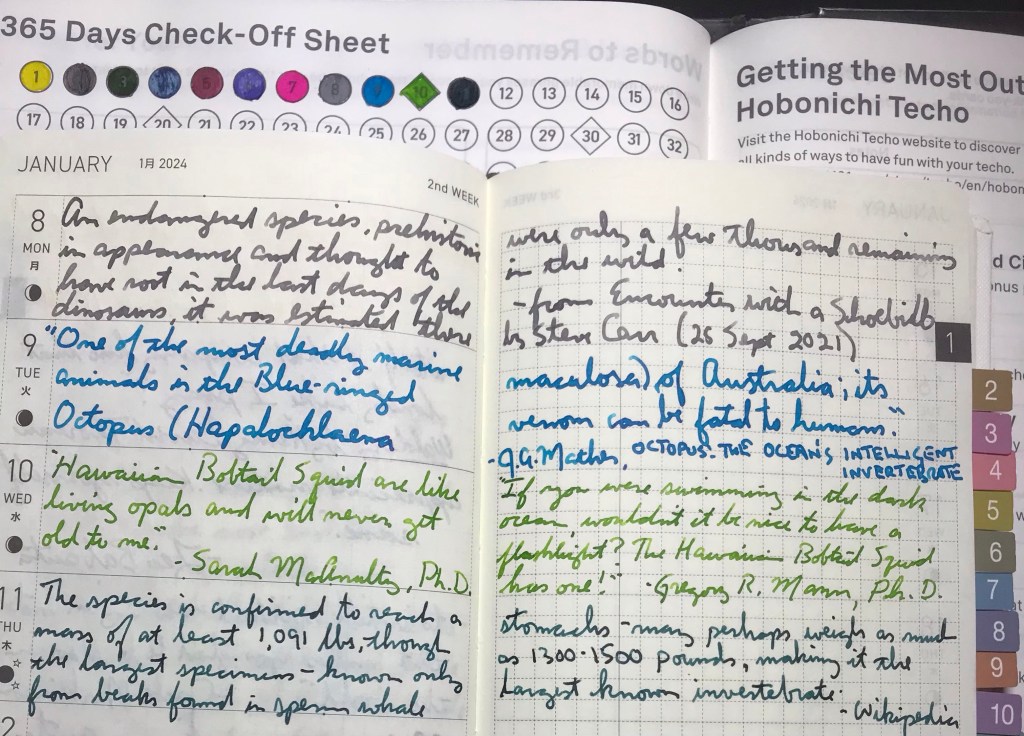 365 Days Check-Off Sheet
Words to Remember
1 3 7 8 10 12 13 14 15 16
17 18 19 20 21 22 23 24 25 26 27 28 29 30 31 32
Getting the Most Out
Hobonichi Techo
Visit the Hobonichi Techo website to discover
all kinds of ways to have fun with your techo.
/en/hobon
JANUARY 1月 2024
2nd WEEK
8
MON
月
An endangered species, prehistoric
in appearance and thought to
have root in the last days of the
dinosaurs, it was estimated there
9
TUE
火
"One of the most deadly marine
animals is the Blue-ringed
Octopus (Hapalochlaena
10
WED
水
"Hawaiian Bobtail Squid are like
living opals and will never get
old to me."
- Sarah McAnulty, Ph.D.
11
THU
木
The species is confirmed to reach a
mass of at least 1,091 lbs, though
the largest specimens - known only
from beaks found in sperm whale
2
were only a few thousand remaining
in the wild.
- from Encounter with a Shoebill
by Steve Carr (26 Sept 2021)
maculosa) of Australia; its
venom can be fatal to humans."
- J.A. Mather, OCTOPUS: THE OCEAN'S INTELLIGENT
INVERTEBRATE
"If you were swimming in the dark
ocean wouldn't it be nice to have a
flashlight? The Hawaiian Bobtail Squid
has one!" - Gregory R. Mann, Ph.D.
stomachs - may perhaps weigh as much
as 1300-1500 pounds, making it the
largest known invertebrate.
- Wikipedia
1
2
3
4
5
6
7
8
9
10